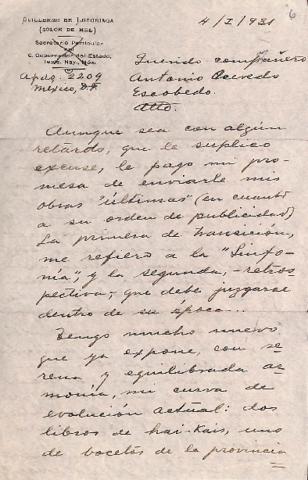 GUILLERMO DE LUZURIAGA
(DOLOR DE MEL)
Secretario Particular
C. Gobernador del Estado,
Tepic, Nay., Méx.
Apdo. 2209
México, D.F.
4/I/931
6
Querido compañero
Antonio Acevedo
Escobedo.
Atto.
Aunque sea con algún
retardo, que le suplico
excuse, le pago mi pro-
mesa de enviarle mis
obras "últimas" (en cuanto
a su orden de publicidad)
La primera de transición,
me refiero a la "Sinfo-
nía", y la segunda, -retros
pectiva,- que debe juzgarse
dentro de su época...
Tengo mucho nuevo
que ya expone, con se
rena y equilibrada ar
monía, mi curva de
evolución actual: dos
libros de hai-kais, uno
de bocetos de la provincia